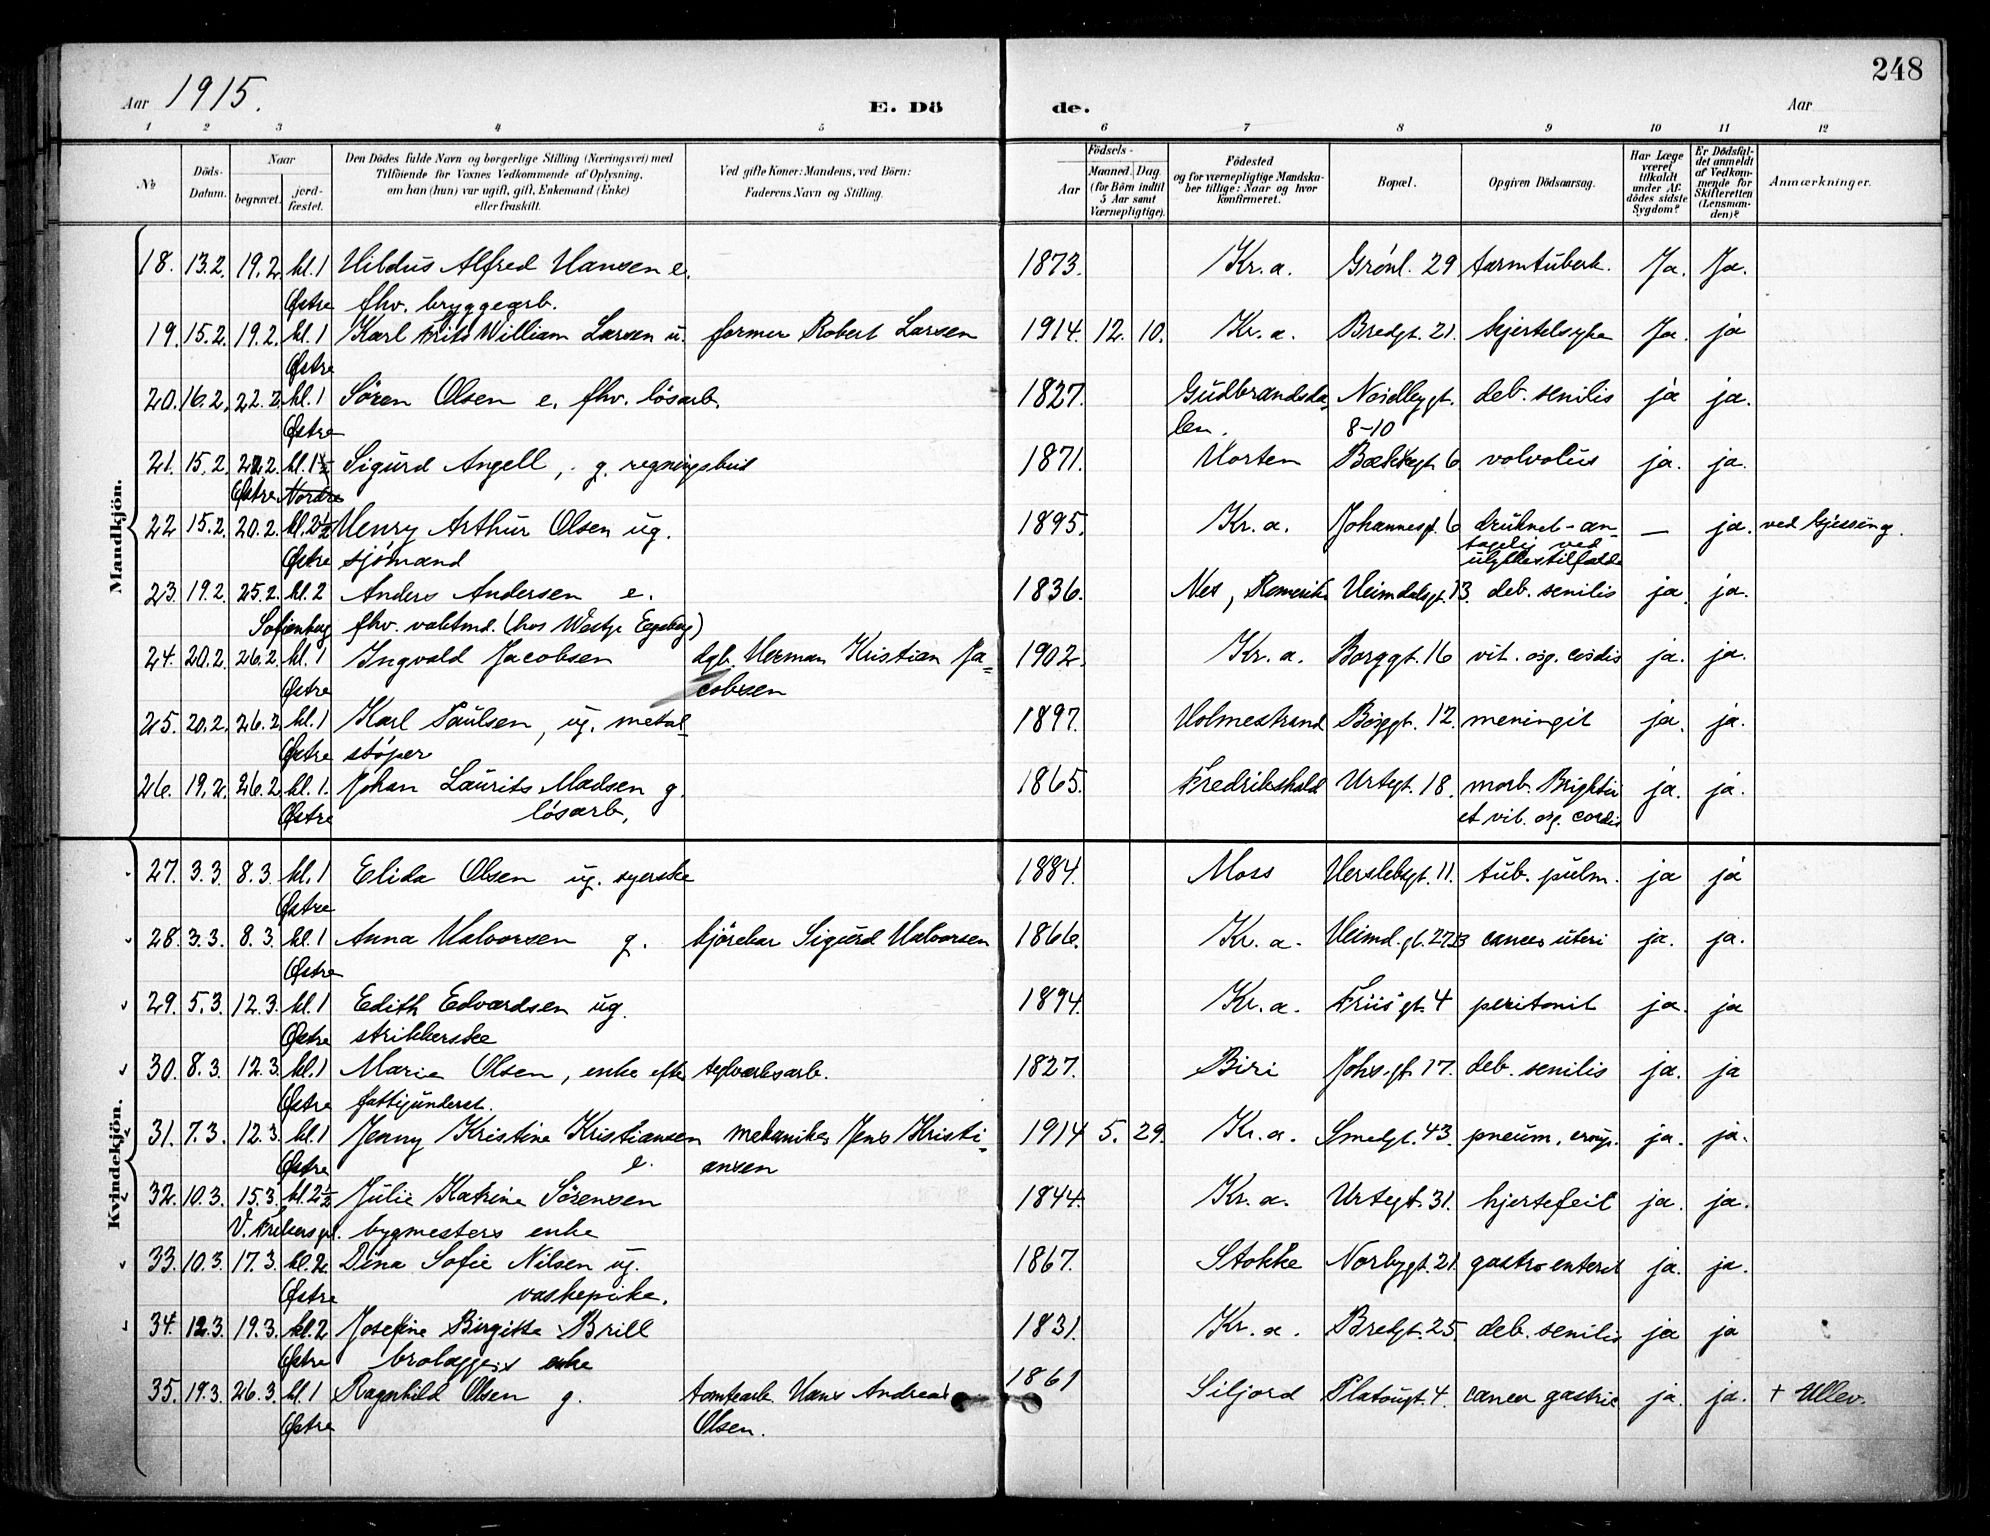 248
Aar 1915. E. Dö de. Aar
1 2 3 4 5 6 7 8 9 10 11 12
No
Döds-Datum.
Naar
begravet.
jord-fæstet.
Den Dödes fulde Navn og borgerlige Stilling (Næringsvei) med
Tilföiende for Voxnes Vedkommende af Oplysning,
om han (hun) var ugift, gift, Enkemand (Enke)
eller fraskilt.
Ved gifte Koner: Mandens, ved Börn:
Faderens Navn og Stilling.
Födsels-
Aar
Maaned. Dag
(for Börn indtil
5 Aar samt
Værnepligtige).
Födested
og for værnepligtige Mandska-
ber tillige: Naar og hvor
konfirmeret.
Bopæl.
Opgiven Dödsaarsag.
Har Læge
været
tilkaldt
under Af-
dödes sidste
Sygdom?
Er Dödsfal-
det anmeldt
af Vedkom-
mende for
Skifteretten
(Lensman-
den)?
Anmærkninger.
Mandkjön.
18. 13.2. 19.2 kl. 1 Hildus Alfred Hansen e. 1873. Kr. a. Grönl. 29 tarmtuberk. Ja. Ja.
Østre fhv. bryggearb.
19. 15.2. 19.2. kl. 1 Karl Frits William Larsen u. former Robert Larsen 1914. 12. 10. Kr. a. Bredgt. 21. hjertelsyke Ja. ja
Østre
20. 16.2. 22.2. kl. 1 Sören Olsen e. fhv. lösarb. 1827. Gudbrandsda- Nordbygt. deb. senilis ja ja.
Østre len. 8-10
21. 15.2. 22.2. kl. 1½ Sigurd Angell, g. regningsbud 1871. Horten Bakkegt. 6 volvolus ja. ja.
Østre Nordre
22 15.2. 20.2. kl. 2½ Henry Arthur Olsen ug. 1895. Kr. a. Johannesgt. 6 druknet - an- — ja. ved Gjessing.
Østre sjömand tagelig ved
ulykkestilfælde
23. 19.2. 25.2. kl. 2 Anders Andersen e. 1836. Nes, Romerike Heimdalsgt. 13. deb. senilis ja. ja.
Sofienberg fhv. vaktmd. (hos Westye Egeberg)
24. 20.2. 26.2. kl. 1 Ingvald Jacobsen dgb. Herman Kristian Ja- 1902. Kr. a. Borggt. 16 vit. org. cordis ja. ja.
Østre cobsen
25. 20.2. 26.2 kl. 1 Karl Paulsen, ug. metal- 1897. Holmestrand Borggt. 12. meningit ja. ja.
Østre stöper
26. 19.2. 26.2 kl. 1. Johan Laurits Madsen g. 1865. Fredrikshald Urtegt. 18. morb. Brightii ja. ja.
Østre lösarb. et vit. org. cordis
Kvindekjön.
27. 3.3. 8.3. kl. 1 Elida Olsen ug. syerske 1884. Moss Herslebsgt. 11. tub. pulm. ja ja
Østre
28. 3.3. 8.3. kl. 1 Anna Halvorsen g. kjörekar Sigurd Halvorsen 1866. Kr. a. Heimd. gt. 27B cancer uteri ja. ja.
Østre
29. 5.3. 12.3. kl. 1 Edith Edvardsen ug. 1894. Kr. a. Friis gt. 4 peritonit ja. ja
Østre strikkerske
30. 8.3. 12.3. kl. 1 Marie Olsen, enke efter teglverksarb. 1827. Biri Johs. gt. 17. deb. senilis ja. ja
Østre fattigunderst.
31. 7.3. 12.3. kl. 1 Jenny Kristine Kristiansen mekaniker Jens Kristi- 1914 5. 29. Kr. a. Smedgt. 43. pneum. croup. ja. ja.
Østre e. ansen
32. 10.3. 15.3. kl. 2½ Julie Katrine Sörensen 1844. Kr. a. Urtegt. 31. hjertefeil ja. ja.
V. Frelsers gr. bygmesters enke
33. 10.3. 17.3. kl. 2 Dina Sofie Nilsen ug. 1867. Stokke Norbygt. 21. gastro enterit ja. ja.
Østre vaskepike.
34. 12.3. 19.3. kl. 2 Josefine Birgitte Brill 1831. Kr. a. Bredgt. 25 deb. senilis ja ja
Østre brolæggers enke
35. 19.3. 26.3. kl. 1 Ragnhild Olsen g. tomtearb. Hans Andreas 1861 Siljord Platougt. 4. cancer gastric ja. ja. + Ullev.
Østre Olsen.